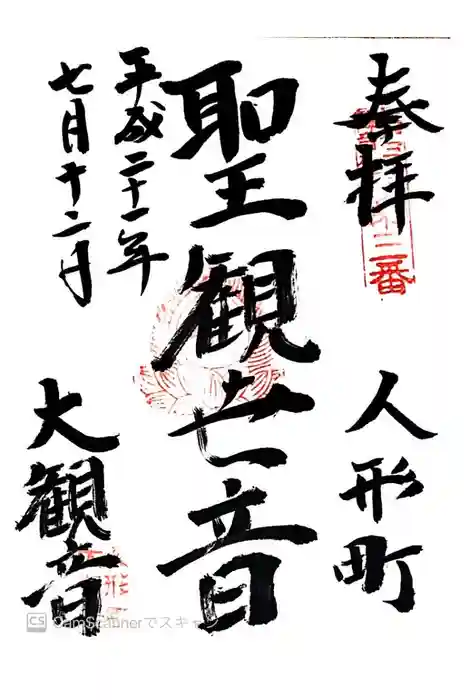 奉拝
人形町
聖観世音
平成二十一年
七月十二日
大観音
三番
CS CamScannerでスキャン